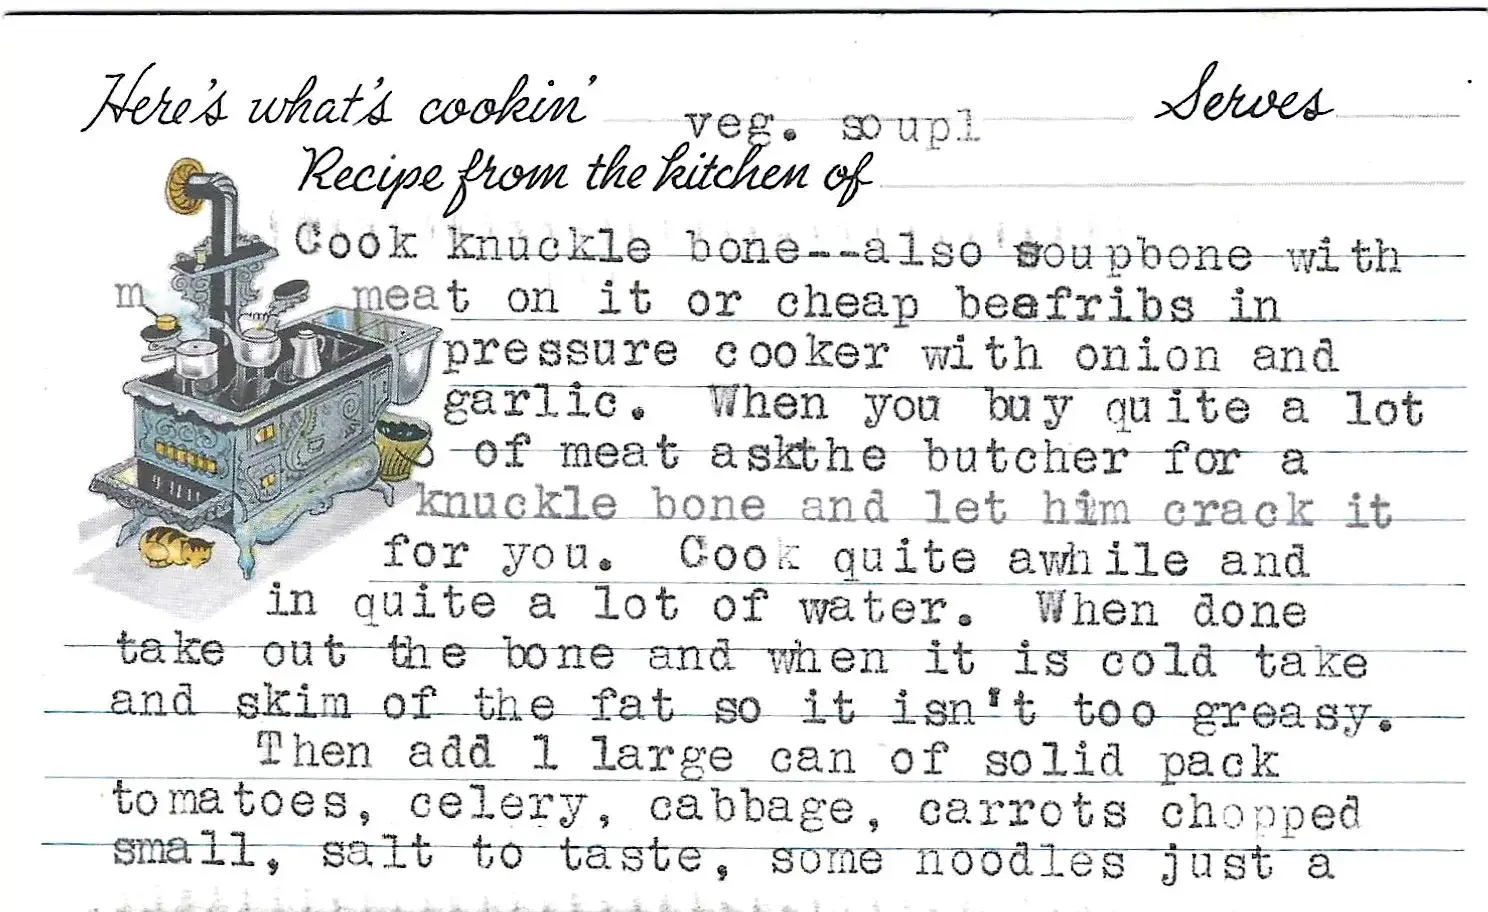 Here's what's cookin' veg. soupl Serves
Recipe from the kitchen of
Cook knuckle bone--also soupbone with
m meat on it or cheap beefribs in
pressure cooker with onion and
garlic. When you buy quite a lot
of meat askthe butcher for a
knuckle bone and let him crack it
for you. Cook quite awhile and
in quite a lot of water. When done
take out the bone and when it is cold take
and skim of the fat so it isn't too greasy.
Then add 1 large can of solid pack
tomatoes, celery, cabbage, carrots chopped
small, salt to taste, some noodles just a